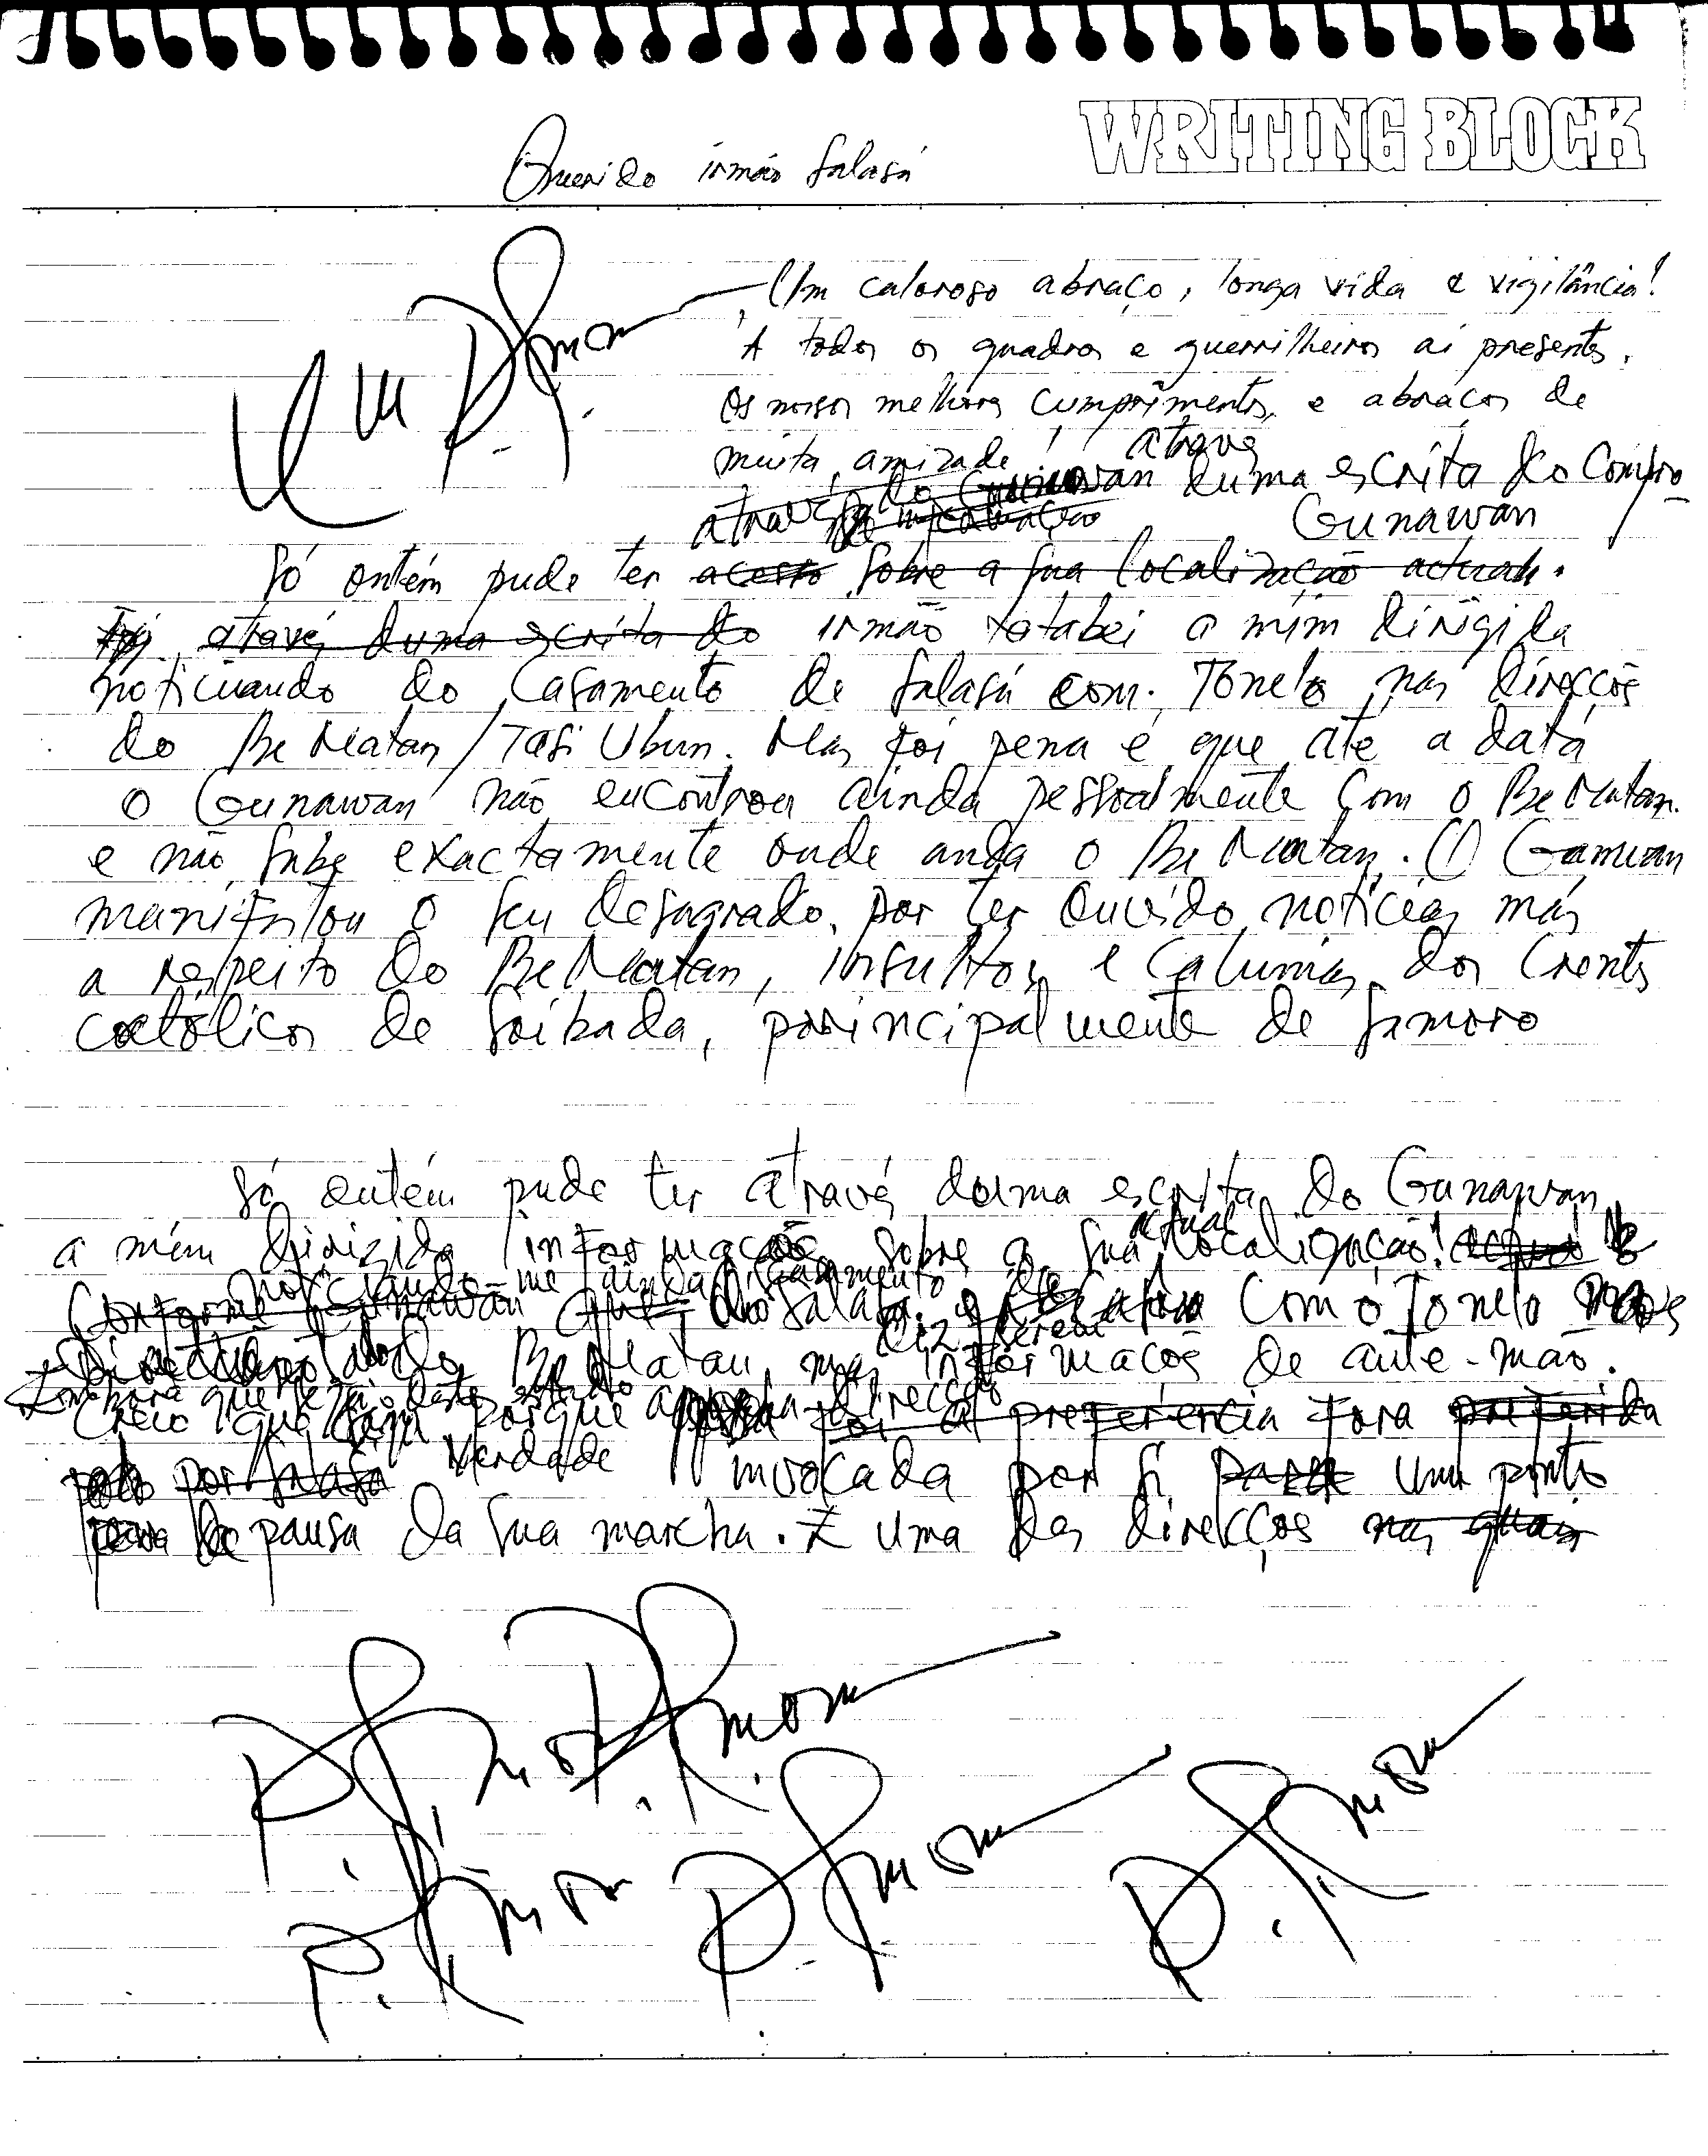 WRITING BLOCK
Querido irmão Salasá
Um caloroso abraço, longa vida e vigilância!
A todos os quadros e guerrilheiros aí presentes,
os nossos melhores cumprimentos, e abraços de
muita amizade!
através
do Gunawan duma escrita do Compro
através
Gunawan
Só ontém pude ter acesso sobre a sua localização actual.
Foi através duma escrita do irmão Xatabei a mim dirigida
noticiando do Casamento de Salasá com Tonelo nas direcções
do Be Matan/Tasi Ubun. Mas foi pena é que até a data
o Gunawan não encontrou ainda pessoalmente com o Be Matan.
e não sabe exactamente onde anda o Be Matan. O Gamwan
manifestou o seu desagrado, por ter ouvido notícias más
a respeito do Be Matan, insultos e calumias dos Crentes
católicos de Soibada, principalmente de Samoro
Só ontém pude ter através duma escrita do Gunawan
a mim dirigida informações sobre a sua localização!
actual
noticiando-me ainda Casamento
Conforme Gunawan que do Salasá com o Tonelo
diz serem
Be Matan, mas informações de ante-mão.
Embora que
direcção
Creio que porque foi a preferência fora preferida
verdade
por invocada por si para um ponto
de pausa da sua marcha. É uma das direcções nas quais